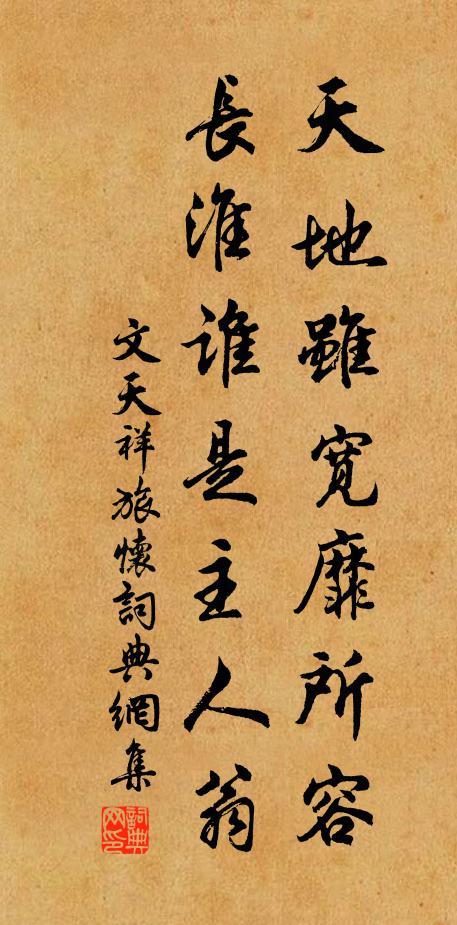 天地雖寬靡所容
長淮誰是主人翁
文天祥旅懷詞典網集
詞典網印